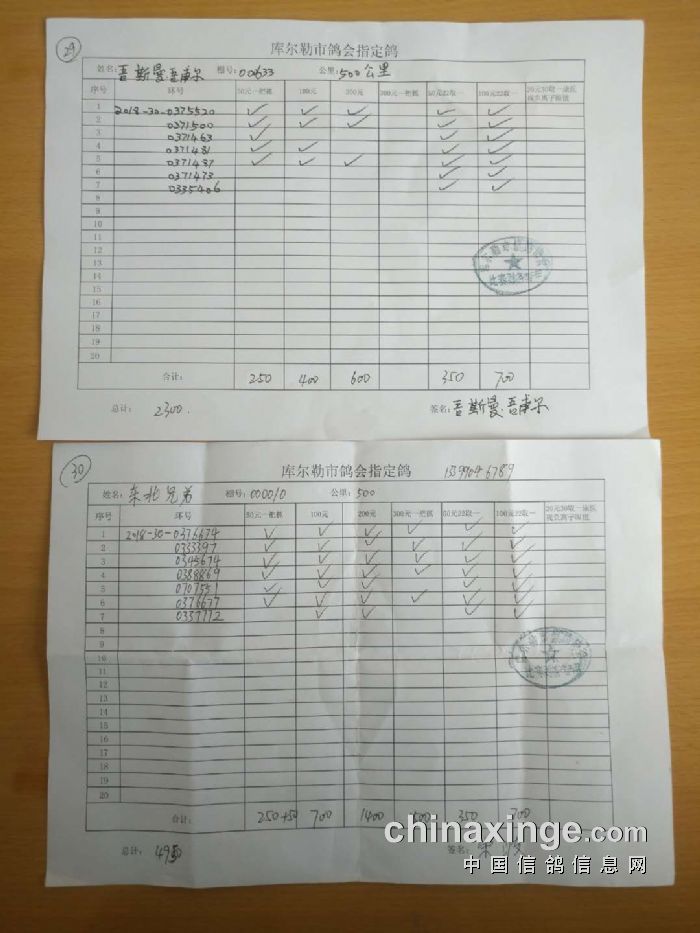 29
库尔勒市鸽会指定鸽
姓名: 吾斯曼·吾甫尔 棚号: 00633 公里: 500公里
序号 环号 50元一把抓 100元 200元 300元一把抓 50元22取一 100元22取一
1 2018-30-0375520 ✓ ✓ ✓ ✓ ✓
2 0371500 ✓ ✓ ✓ ✓ ✓
3 0371463 ✓ ✓ ✓
4 0371431 ✓ ✓ ✓ ✓
5 0371437 ✓ ✓ ✓ ✓ ✓
6 0371473 ✓ ✓
7 0335406 ✓ ✓
8
9
10
11
12
13
14
15
16
17
18
19
20
合计: 250 400 600 350 700
总计: 2300. 签名: 吾斯曼·吾甫尔
30
库尔勒市鸽会指定鸽
姓名: 东北兄弟 棚号: 000010 公里: 500
序号 环号 50元一把抓 100元 200元 300元一把抓 50元22取一 100元22取一
1 2018-30-0376674 ✓ ✓ ✓ ✓ ✓ ✓
2 0333397 ✓ ✓ ✓ ✓ ✓ ✓
3 0345674 ✓ ✓ ✓ ✓ ✓ ✓
4 0388869 ✓ ✓ ✓ ✓ ✓ ✓
5 0707551 ✓ ✓ ✓ ✓ ✓
6 0376677 ✓ ✓ ✓ ✓ ✓ ✓
7 0337772 ✓ ✓ ✓
8
9
10
11
12
13
14
15
16
17
18
19
20
合计: 250+50 700 1400 350 700
总计: 签名:
chinaxinge.com
中国信鸽信息网